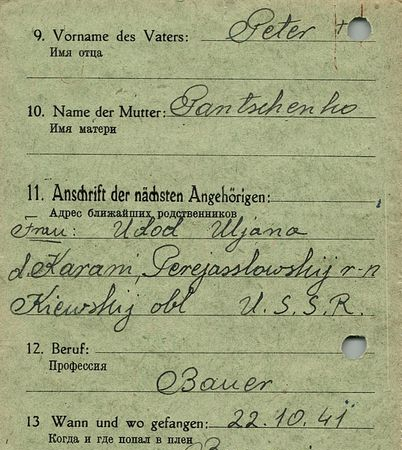 9. Vorname des Vaters: Peter +
Имя отца
10. Name der Mutter: Pantschenko
Имя матери
11. Anschrift der nächsten Angehörigen:
Адрес ближайших родственников
Frau: Udod Uljana
d. Karani, Perejasslowskij r-n
Kiewskij obl U.S.S.R.
12. Beruf:
Профессия
Bauer
13 Wann und wo gefangen: 22.10.41
Когда и где попал в плен